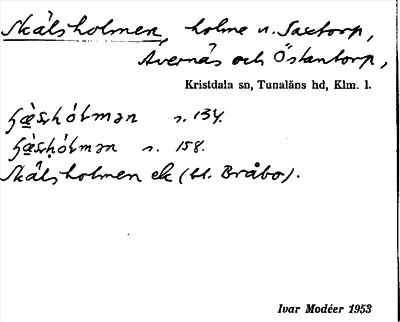 Skälsholmen, holme n. Saxtorp,
Avernäs och Östantorp,
Kristdala sn, Tunaläns hd, Klm. l.
s. 134.
s. 158.
Skälsholmen ek (bl. Bråbo).
Ivar Modéer 1953